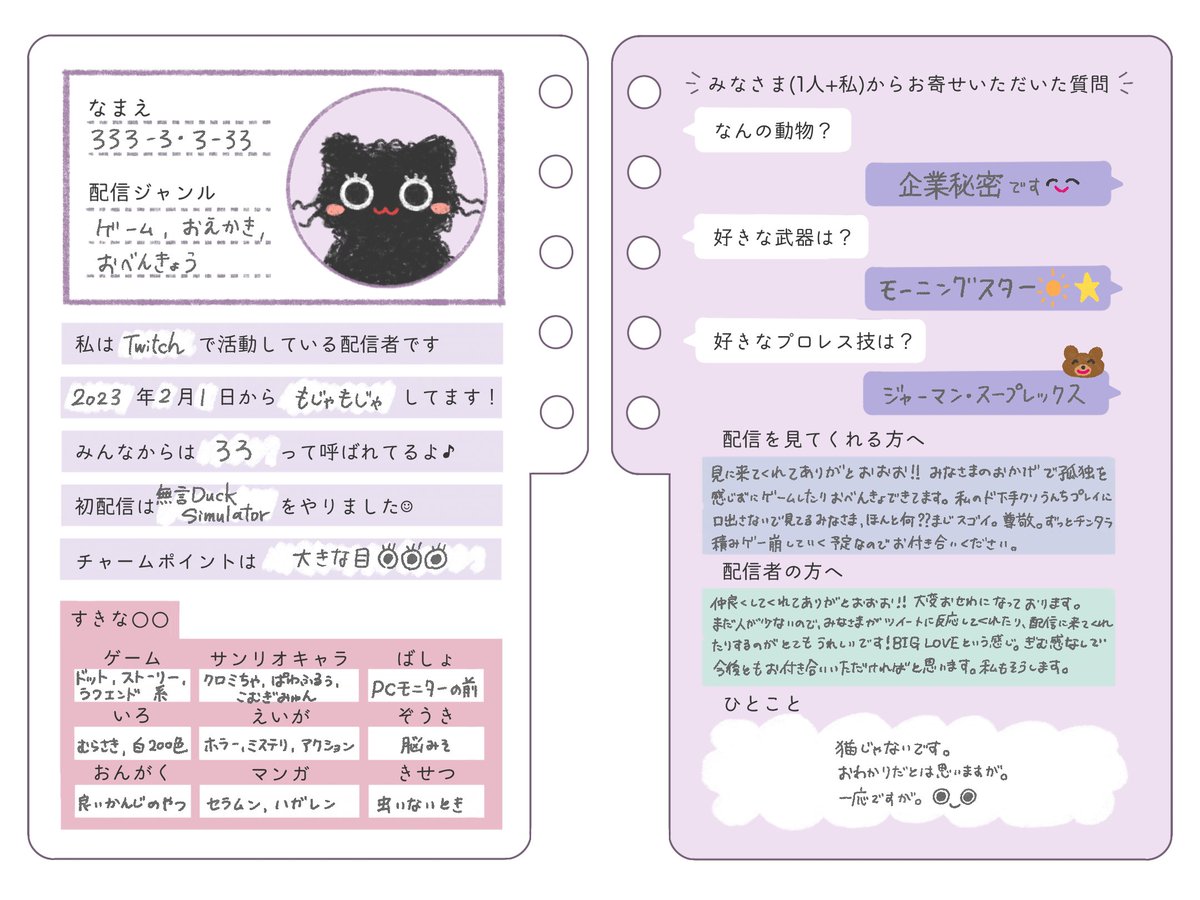 なまえ
333-3・3-33
配信ジャンル
ゲーム, おえかき,
おべんきょう
私は Twitch で活動している配信者です
2023 年 2 月 1 日から もじゃもじゃ してます!
みんなからは 33 って呼ばれてるよ♪
初配信は 無言Duck Simulator をやりました☺
チャームポイントは 大きな目
すきな○○
ゲーム
ドット, ストーリー,
ラクエンド 系
サンリオキャラ
クロミちゃ, ぱわふるぅ,
こむぎみゅん
ばしょ
PCモニターの前
いろ
むらさき, 白200色
えいが
ホラー, ミステリ, アクション
ぞうき
脳みそ
おんがく
良いかんじのやつ
マンガ
セラムン, ハガレン
きせつ
虫いないとき
みなさま(1人+私)からお寄せいただいた質問
なんの動物?
企業秘密です
好きな武器は?
モーニングスター
好きなプロレス技は?
ジャーマン・スープレックス
配信を見てくれる方へ
見に来てくれてありがとおおお!! みなさまのおかげで孤独を
感じずにゲームしたりおべんきょできてます。私のド下手クソうんちプレイに
口出さないで見てるみなさま, ほんと何??まじスゴイ。尊敬。ずっとチンタラ
積みゲー崩していく予定なのでお付き合いください。
配信者の方へ
仲良くしてくれてありがとおおお!! 大変おせわになっております。
まだ人が少ないので, みなさまがツイートに反応してくれたり, 配信に来てくれ
たりするのがとてもうれしいです!BIG LOVEという感じ。ぎむ感なしで
今後ともお付き合いいただければと思います。私もそうします。
ひとこと
猫じゃないです。
おわかりだとは思いますが。
一応ですが。